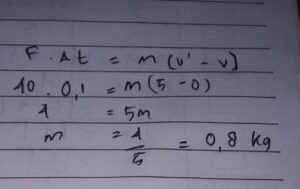 F . Δt = m(v' - v)
40 . 0,1 = m(5 - 0)
4 = 5m
m = 4/5 = 0,8 kg